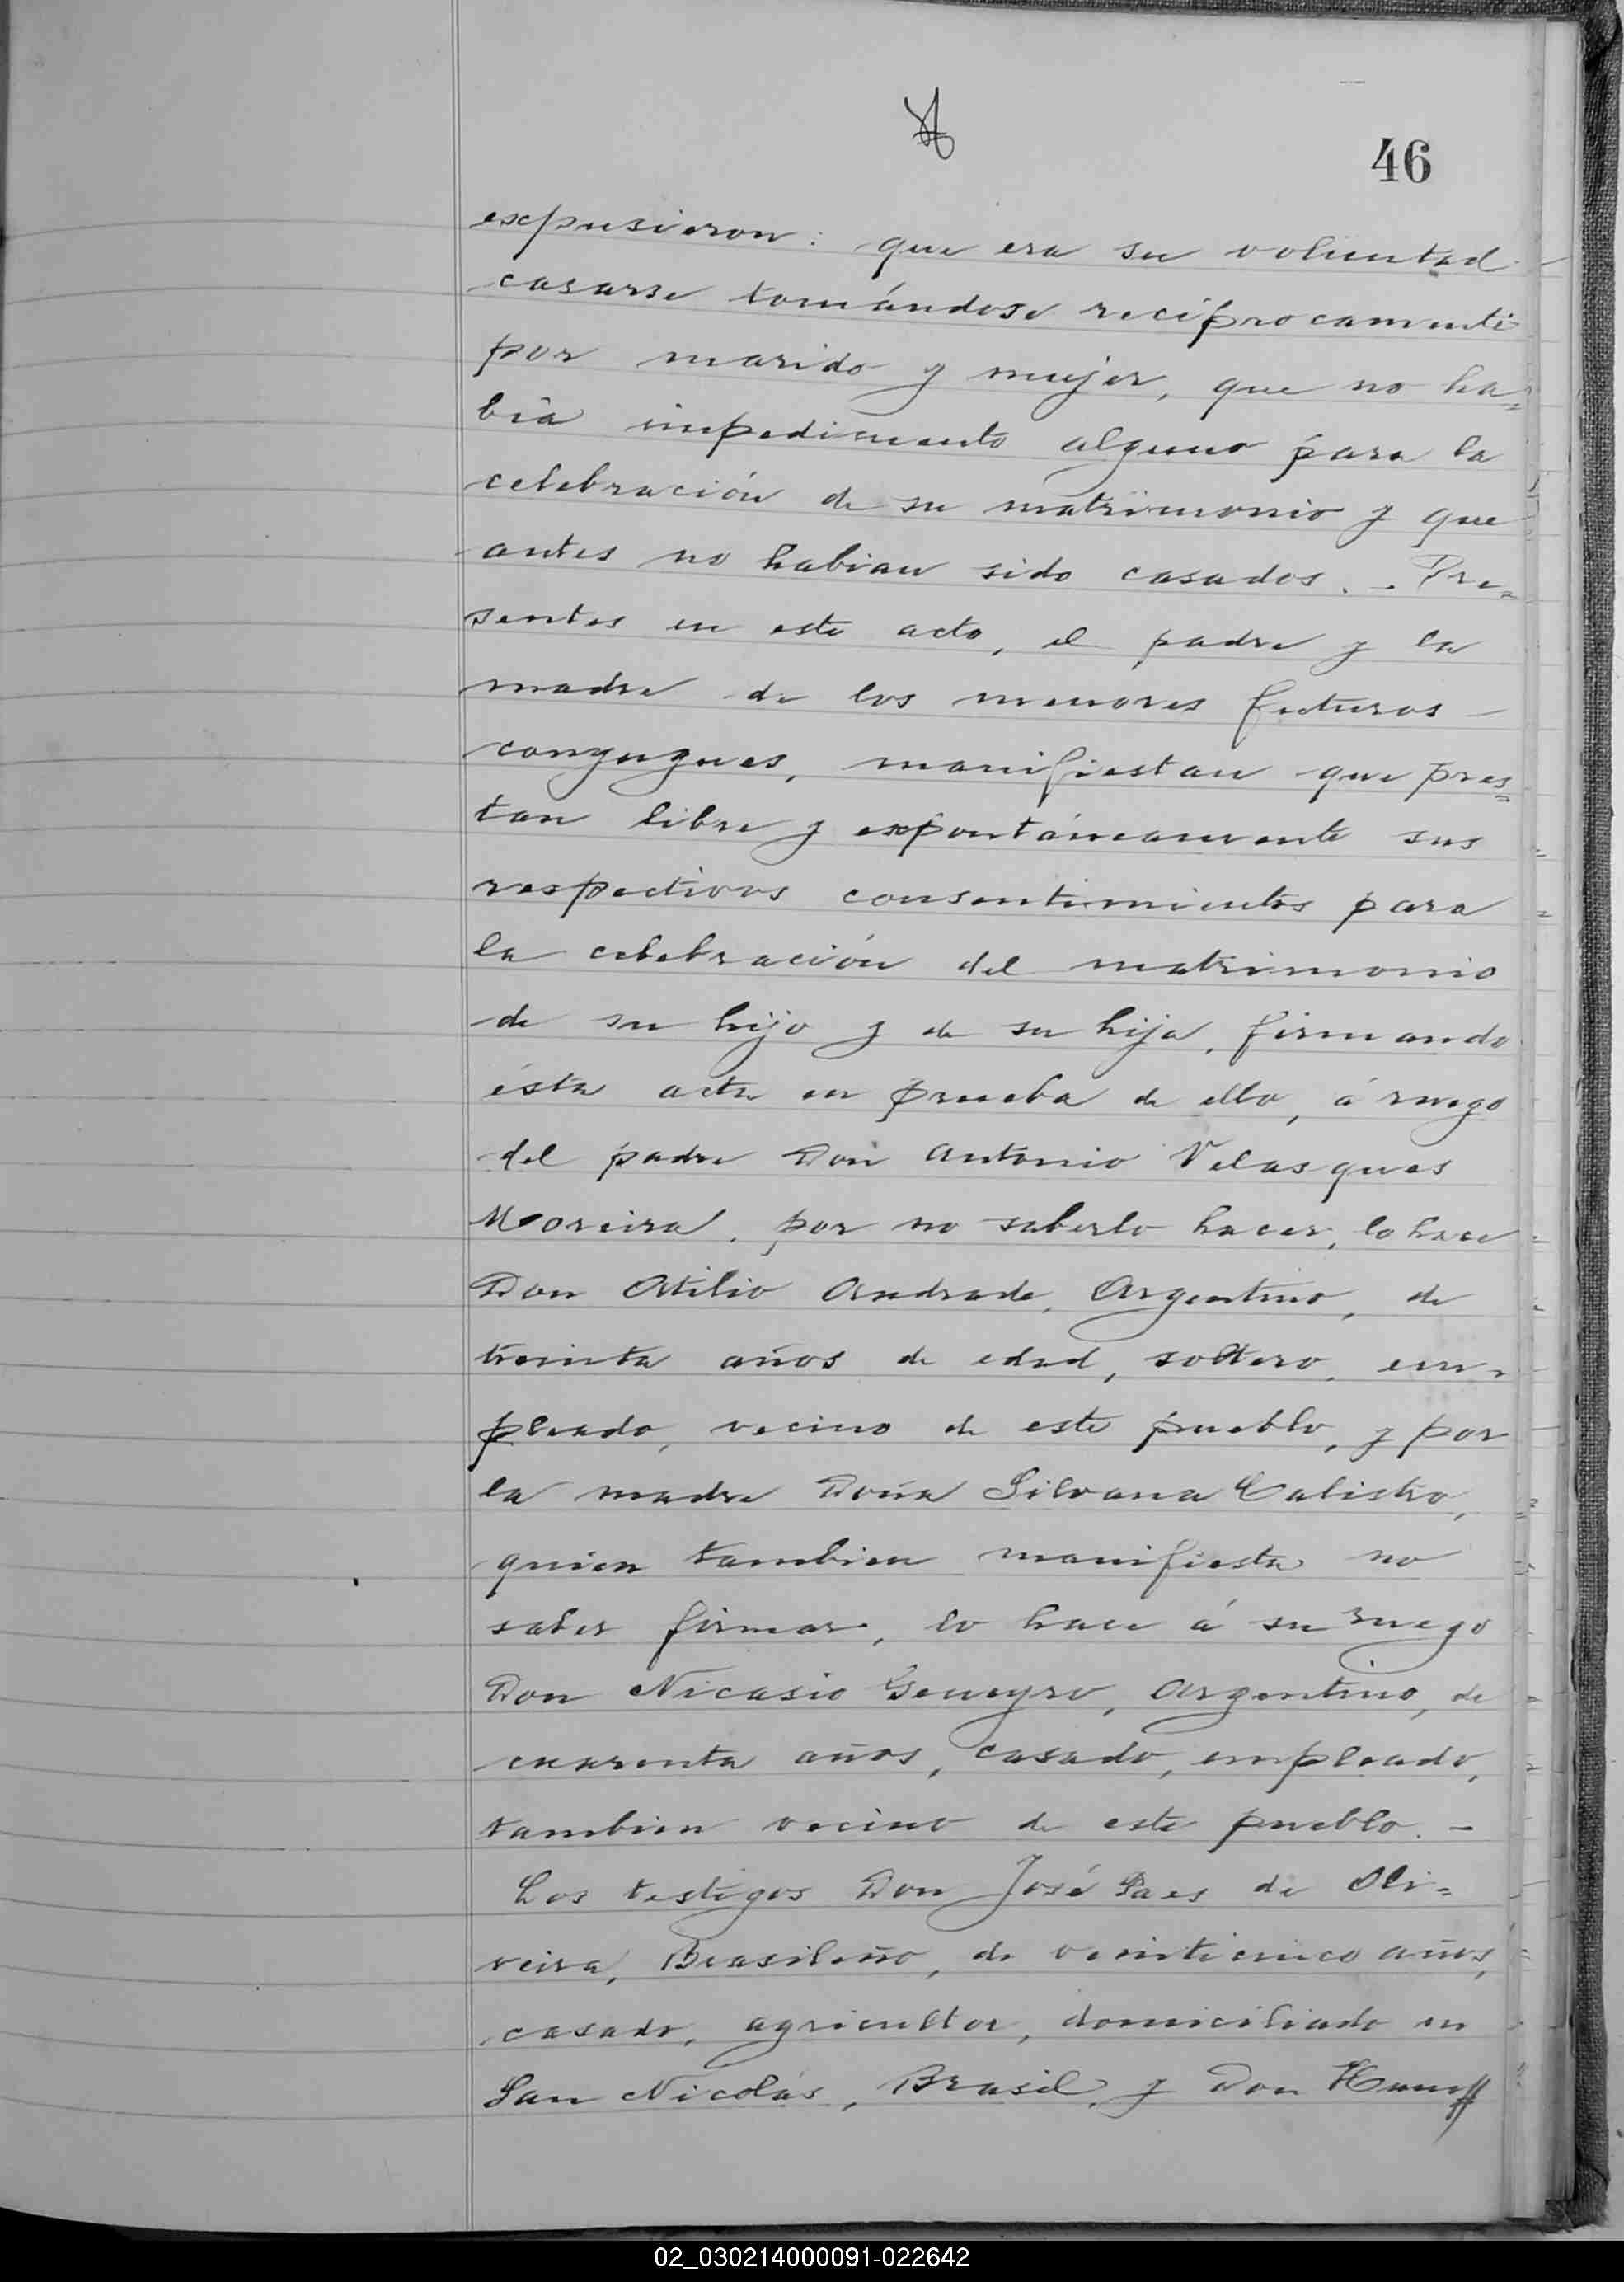 46
expusieron: que era su voluntad
casarse tomándose recíprocamente
por marido y mujer, que no ha=
bía impedimento alguno para la
celebración de su matrimonio y que
antes no habian sido casados. - Pre=
sentes en este acto, el padre y la
madre de los menores futuros -
conyugues, manifiestan que pres=
tan libre y expontáneamente sus
respectivos consentimientos para
la celebración del matrimonio
de su hijo y de su hija, firmando
ésta acta en prueba de ello, á ruego
del padre Don Antonio Velasques
Moreira, por no saberlo hacer, lo hace
Don Atilio Andrade, Argentino, de
treinta años de edad, soltero, em-
pleado, vecino de este pueblo, y por
la madre Doña Silvana Calistro,
quien tambien manifiesta no
saber firmar, lo hace á su ruego
Don Nicasio Geneyro, Argentino, de
cuarenta años, casado, empleado,
tambien vecino de este pueblo. -
Los testigos Don José Paes de Oli=
veira, Brasileño, de veinticinco años,
casado, agricultor, domiciliado en
San Nicolás, Brasil, y Don
02_030214000091-022642